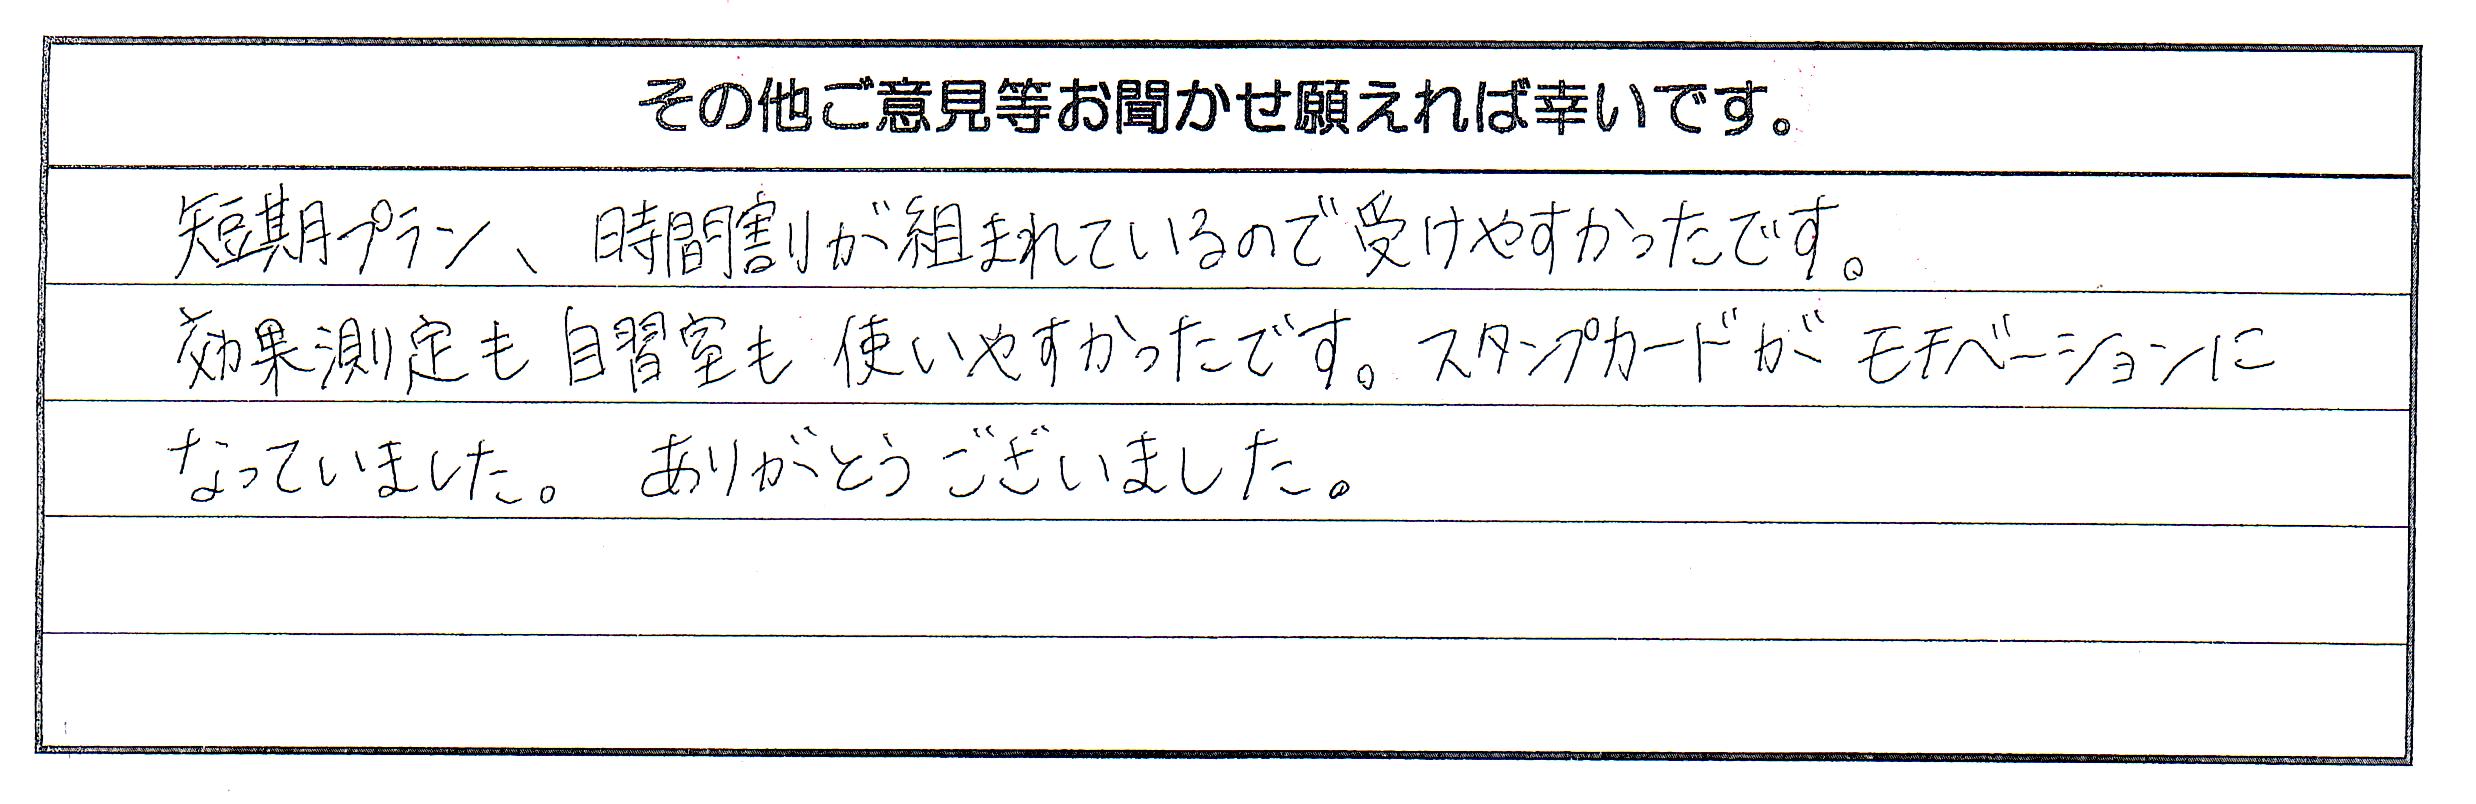 その他ご意見等お聞かせ願えれば幸いです。
短期プラン、時間割が組まれているので受けやすかったです。
効果測定も自習室も使いやすかったです。スタンプカードがモチベーションに
なっていました。ありがとうございました。